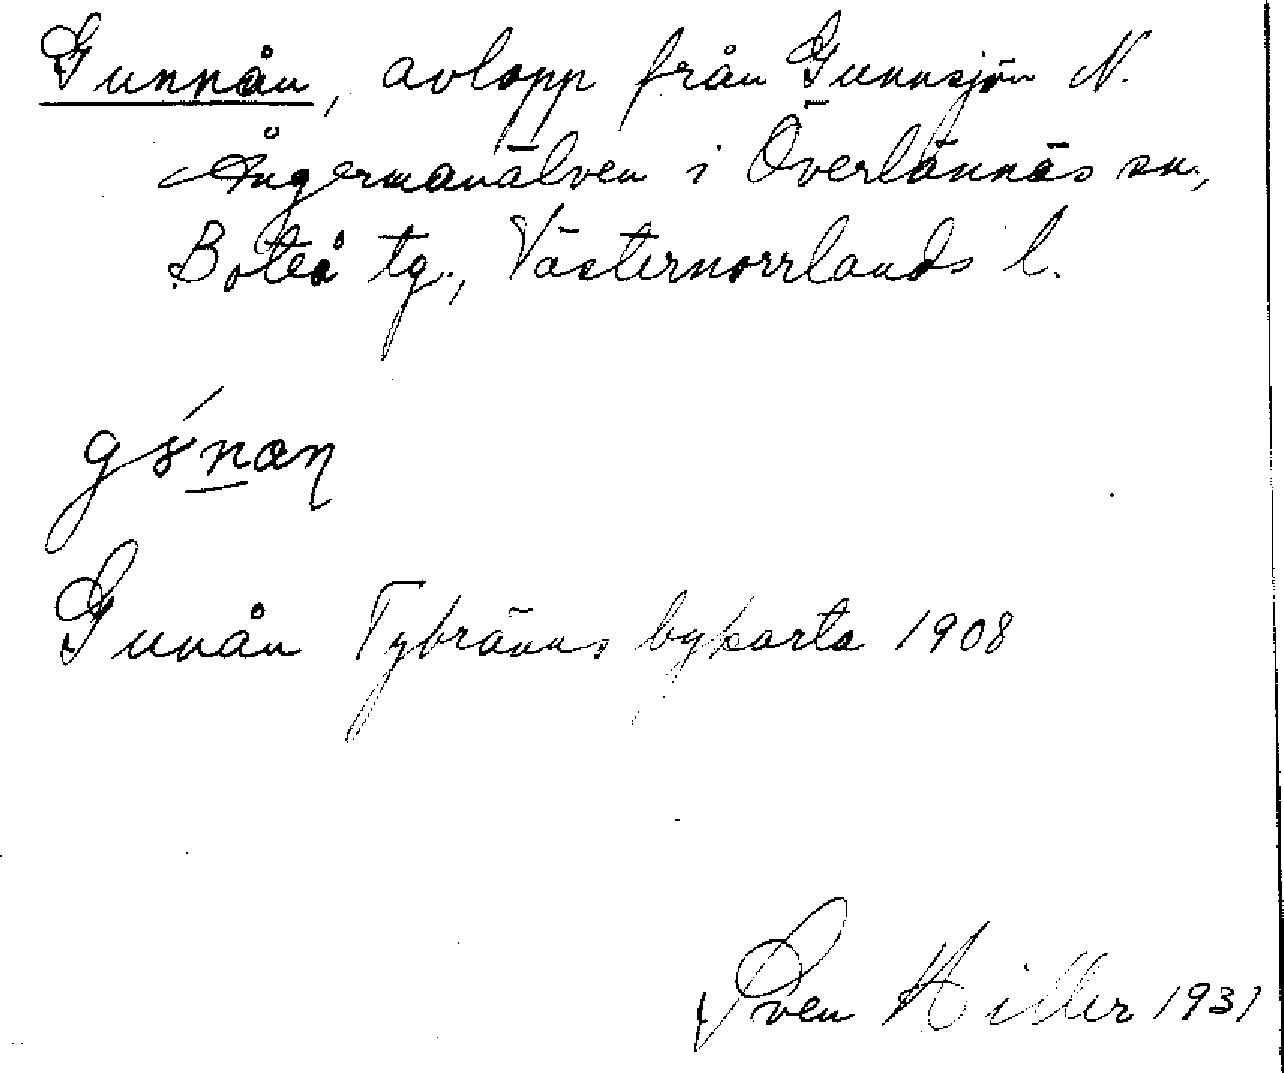 Gunnån, avlopp från Gunnsjön N.
Ångermanälven i Överlännäs sn.,
Boteå tg., Västernorrlands l.
Gunån Tybränns bykarta 1908
Sven Hiller 1931